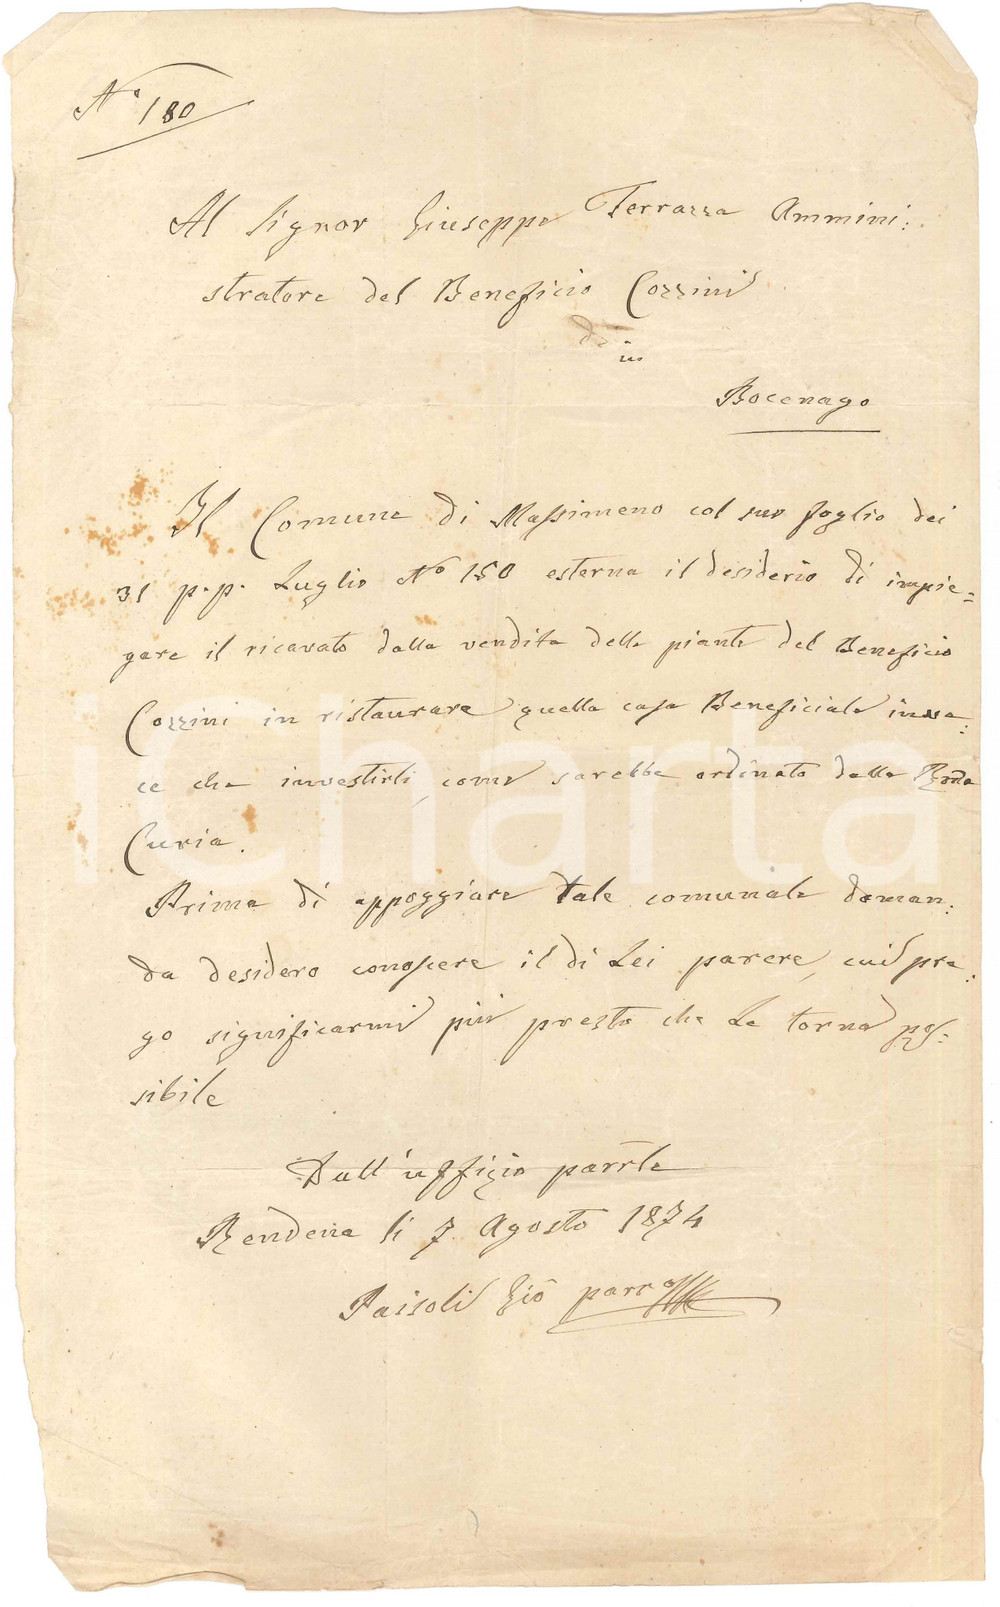 N.° 180
Al Signor Giuseppe Terrazza Ammini:
stratore del Beneficio Cozzini
in
Bocenago
Il Comune di Massimeno col suo foglio dei
31 p.p. Luglio N° 150 esterna il desiderio di impie=
gare il ricavato dalla vendita delle piante del Beneficio
Cozzini in ristaurare quella casa Beneficiale inve:
ce che investirli, come sarebbe ordinato dalla Rma
Curia.
Prima di appoggiare tale comunale doman:
da desidero conoscere il di Lei parere, cui pre:
go significarmi più presto che Le torna pos:
sibile
Dall'uffizio parrle
Rendena li 7. Agosto 1874
Paisoli Gio parro
iCharta